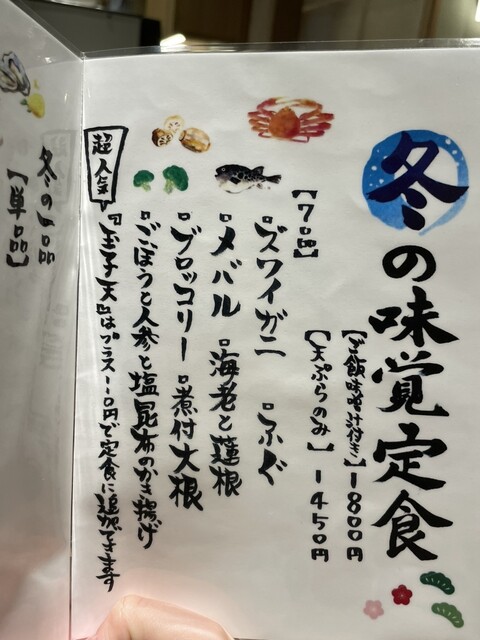 冬の味覚定食
【ご飯味噌汁付き】1800円
【天ぷらのみ】1450円
【7品】
▫ズワイガニ ▫ふぐ
▫メバル ▫海老と蓮根
▫ブロッコリー ▫煮付大根
▫ごぼうと人参と塩昆布のかき揚げ
超人気
『玉子天』はプラス10円で定食に追加できます
冬の一品
【単品】